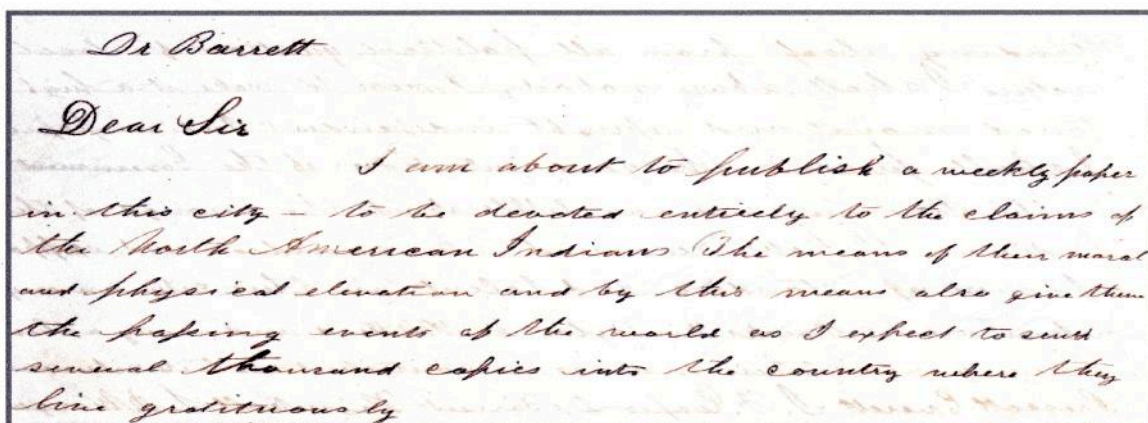 Dr Barrett
Dear Sir
I am about to publish a weekly paper
in this city - to be devoted entirely to the claims of
the North American Indians The means of their moral
and physical elevation and by this means also give them
the passing events of the world as I expect to send
several thousand copies into the country where they
live gratituously